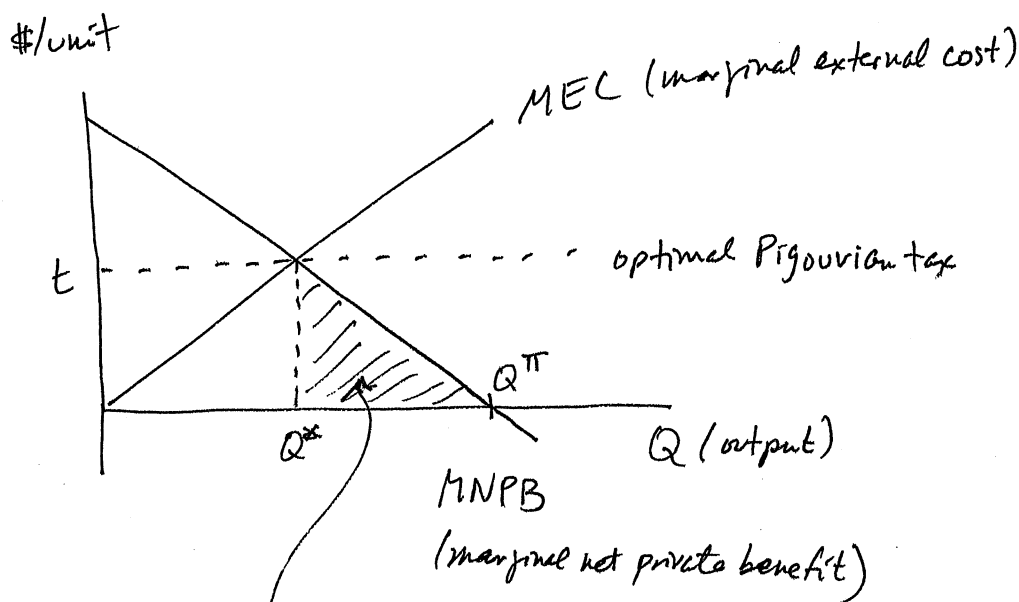 $/unit
MEC (marginal external cost)
t
optimal Pigouvian tax
Q^π
Q*
Q (output)
MNPB
(marginal net private benefit)